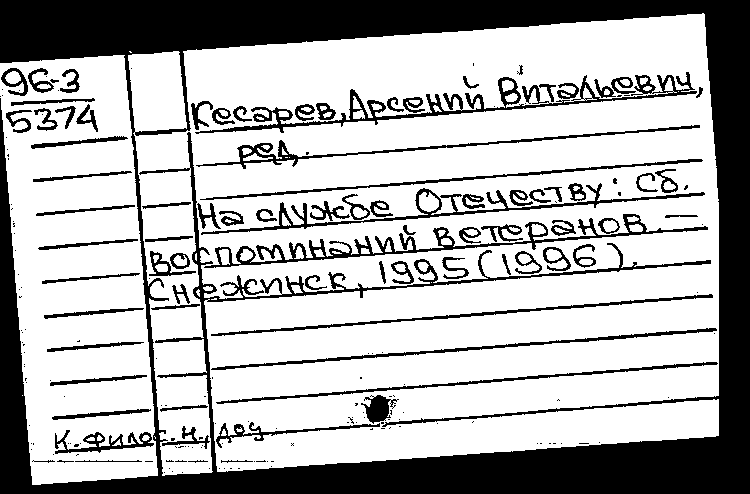 96-3
5374
Кесарев, Арсений Витальевич,
ред.
На службе Отечеству: Сб.
воспоминаний ветеранов. —
Снежинск, 1995 (1996).
К. филос. н., доц